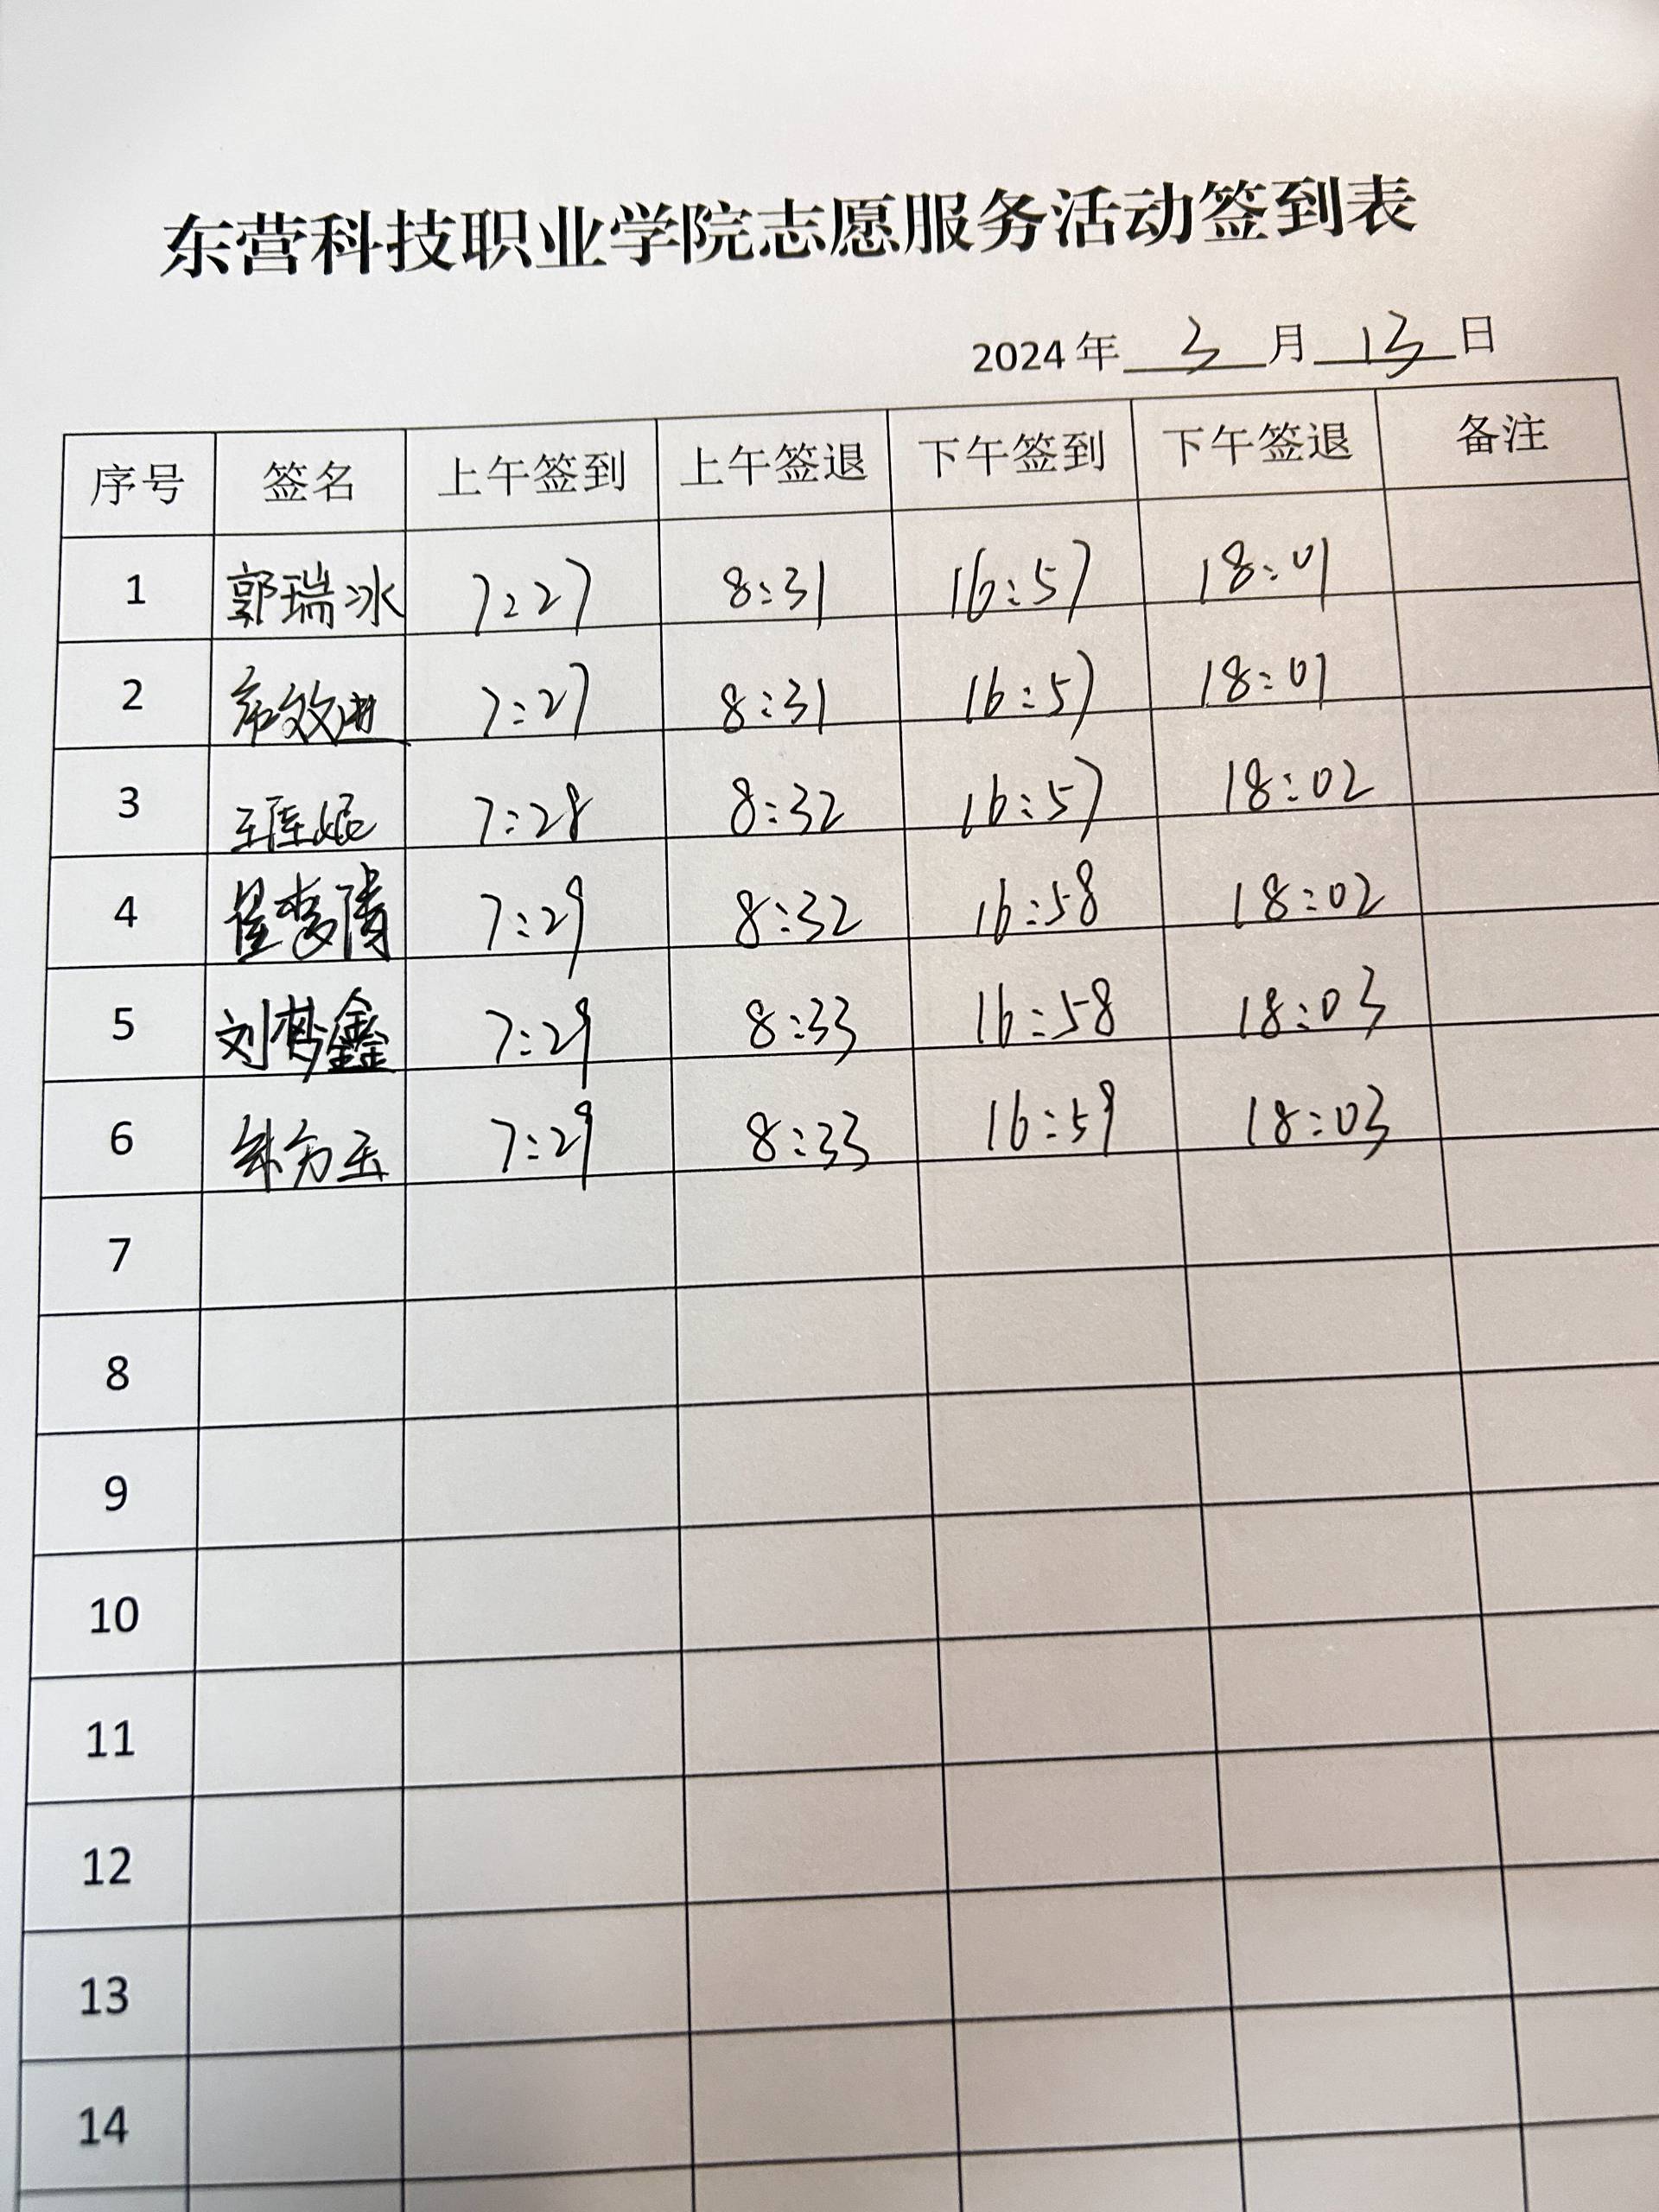 东营科技职业学院志愿服务活动签到表
2024年 3 月 13 日
序号 签名 上午签到 上午签退 下午签到 下午签退 备注
1 郭瑞冰 7:27 8:31 16:57 18:01
2 7:27 8:31 16:57 18:01
3 7:28 8:32 16:57 18:02
4 7:29 8:32 16:58 18:02
5 刘梦鑫 7:29 8:33 16:58 18:03
6 7:29 8:33 16:59 18:03
7
8
9
10
11
12
13
14